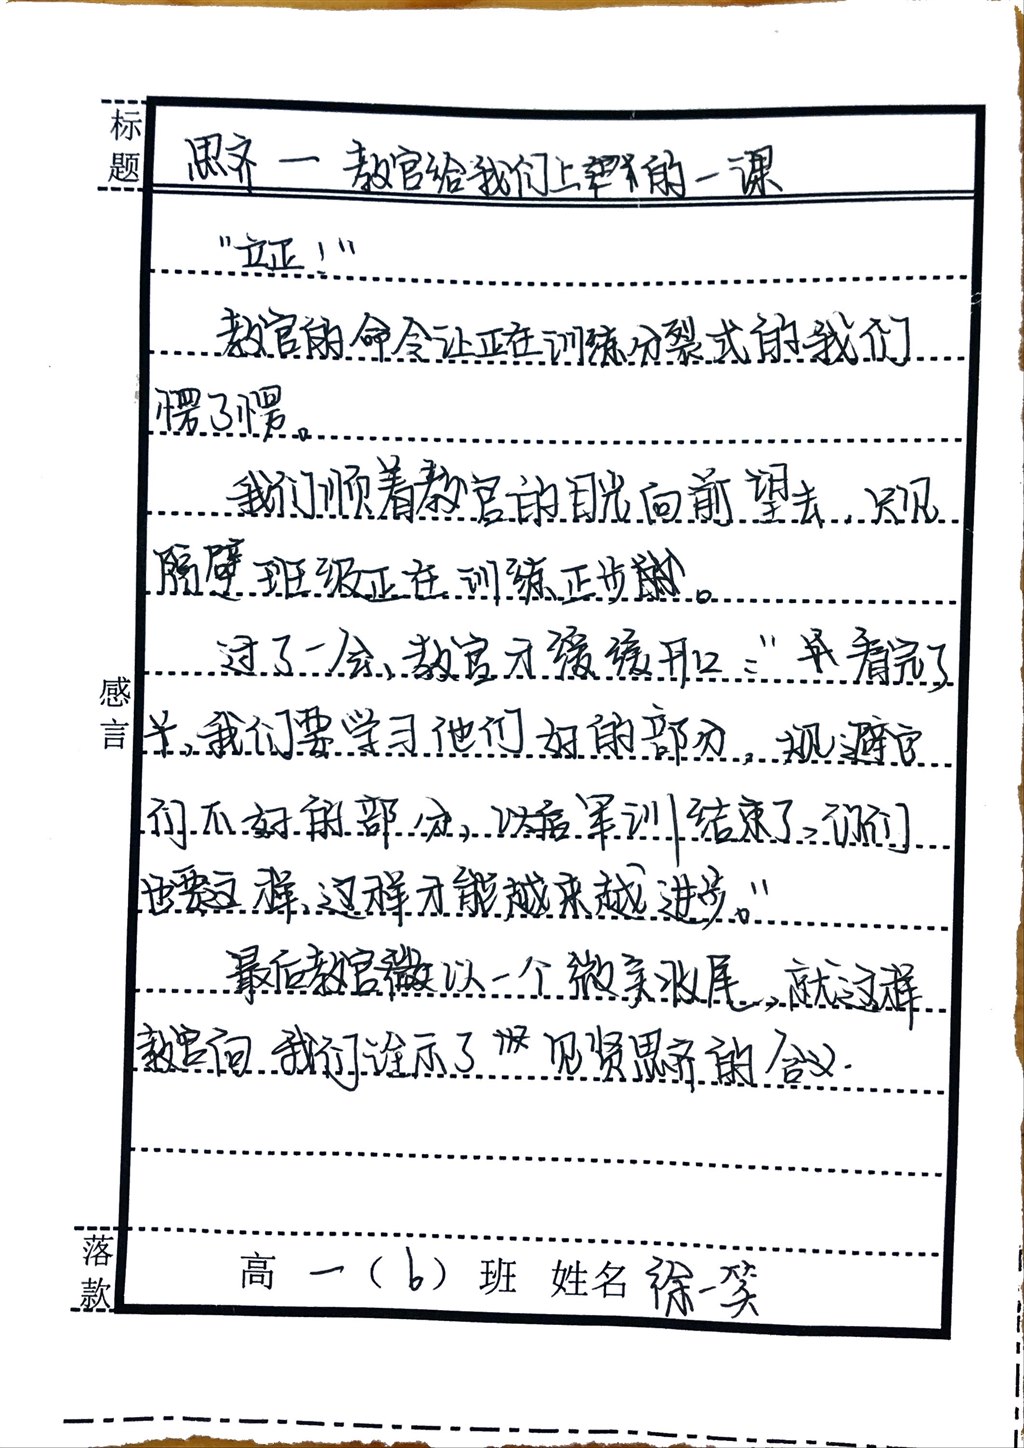 标题
思齐一教官给我们上的一课
"立正！"
教官的命令让正在训练分裂式的我们
愣了愣。
我们顺着教官的目光向前望去，只见
隔壁班级正在训练正步。
过了一会，教官才缓缓开口："看完了
，我们要学习他们好的部分，规避它
们不好的部分，以后军训结束了，你们
也要这样，这样才能越来越进步。"
感言
最后教官以一个微笑收尾，就这样
教官向我们诠示了见贤思齐的含义.
落款
高一（6）班 姓名 徐一笑